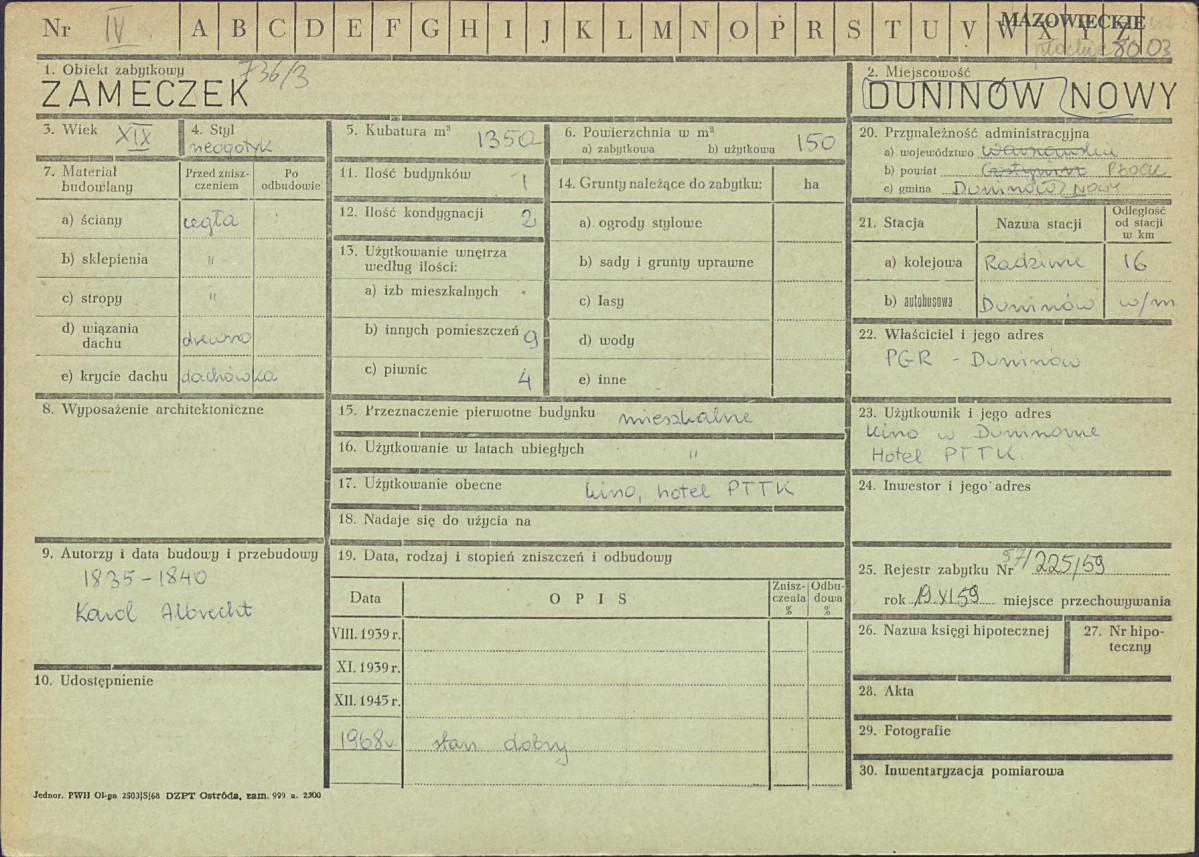 Nr IV A B C D E F G H I J K L M N O P R S T U V W X Y Z
MAZOWIECKIE
płockie 8003
736/3
1. Obiekt zabytkowy
ZAMECZEK
2. Miejscowość
DUNINÓW NOWY
3. Wiek XIX
4. Styl
neogotyk
5. Kubatura m³ 1350
6. Powierzchnia w m²
a) zabytkowa b) użytkowa 150
7. Materiał budowlany
Przed zniszczeniem
Po odbudowie
a) ściany cegła
b) sklepienia "
c) stropy "
d) wiązania dachu drewno
e) krycie dachu dachówka
8. Wyposażenie architektoniczne
9. Autorzy i data budowy i przebudowy
1835-1840
Karol Albrecht
10. Udostępnienie
11. Ilość budynków 1
12. Ilość kondygnacji 2
13. Użytkowanie wnętrza
według ilości:
a) izb mieszkalnych
b) innych pomieszczeń 9
c) piwnic 4
14. Grunty należące do zabytku: ha
a) ogrody stylowe
b) sady i grunty uprawne
c) lasy
d) wody
e) inne
15. Przeznaczenie pierwotne budynku mieszkalne
16. Użytkowanie w latach ubiegłych "
17. Użytkowanie obecne kino, hotel PTTK
18. Nadaje się do użycia na
19. Data, rodzaj i stopień zniszczeń i odbudowy
Data OPIS Zniszczenia % Odbudowa %
VIII. 1939 r.
XI. 1939 r.
XII. 1945 r.
1968r. stan dobry
20. Przynależność administracyjna
a) województwo Warszawskie
b) powiat Gostynin PŁOCK
c) gmina Duninów NOWY
21. Stacja Nazwa stacji Odległość od stacji w km
a) kolejowa Radziwie 16
b) autobusowa Duninów w/m
22. Właściciel i jego adres
PGR - Duninów
23. Użytkownik i jego adres
Kino w Duninowie
Hotel PTTK
24. Inwestor i jego adres
25. Rejestr zabytku Nr 57/225/59
rok 19.XI.59 miejsce przechowywania
26. Nazwa księgi hipotecznej
27. Nr hipoteczny
28. Akta
29. Fotografie
30. Inwentaryzacja pomiarowa
Jednor. PWH Ol-pn 2503|S|68 DZPT Ostróda, zam. 999 n. 2500